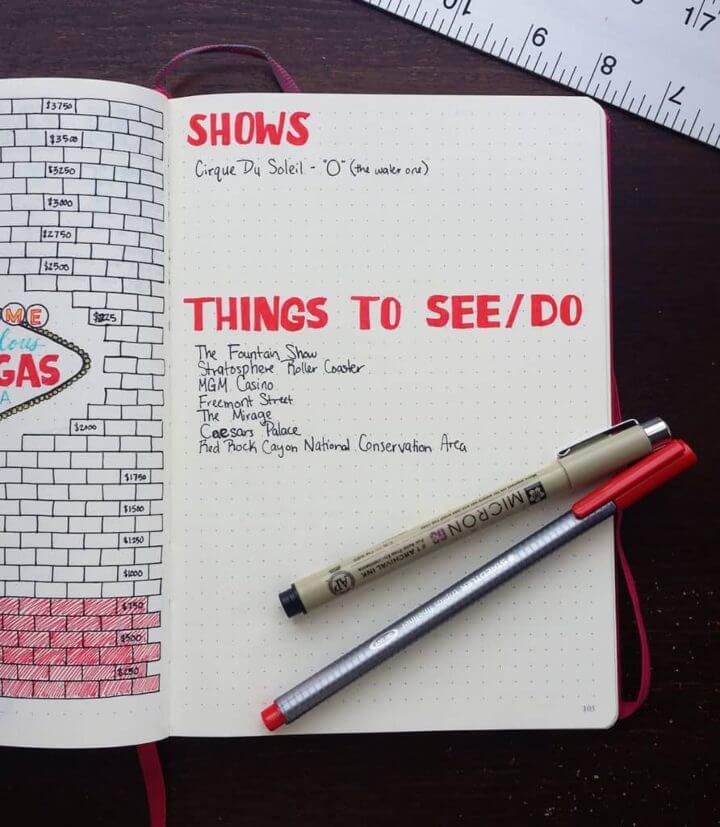 $3750
$3500
$3250
$3000
$2750
$2500
$225
ME
GAS
A
$2000
$1750
$1500
$1250
$1000
$750
$500
$250
SHOWS
Cirque Du Soleil - "O" (the water one)
THINGS TO SEE/DO
The Fountain Show
Stratosphere Roller Coaster
MGM Casino
Freemont Street
The Mirage
Caesars Palace
Red Rock Cayon National Conservation Area
MICRON 03
ARCHIVAL INK
AP
STAEDTLER
103
10
9
8
7
17